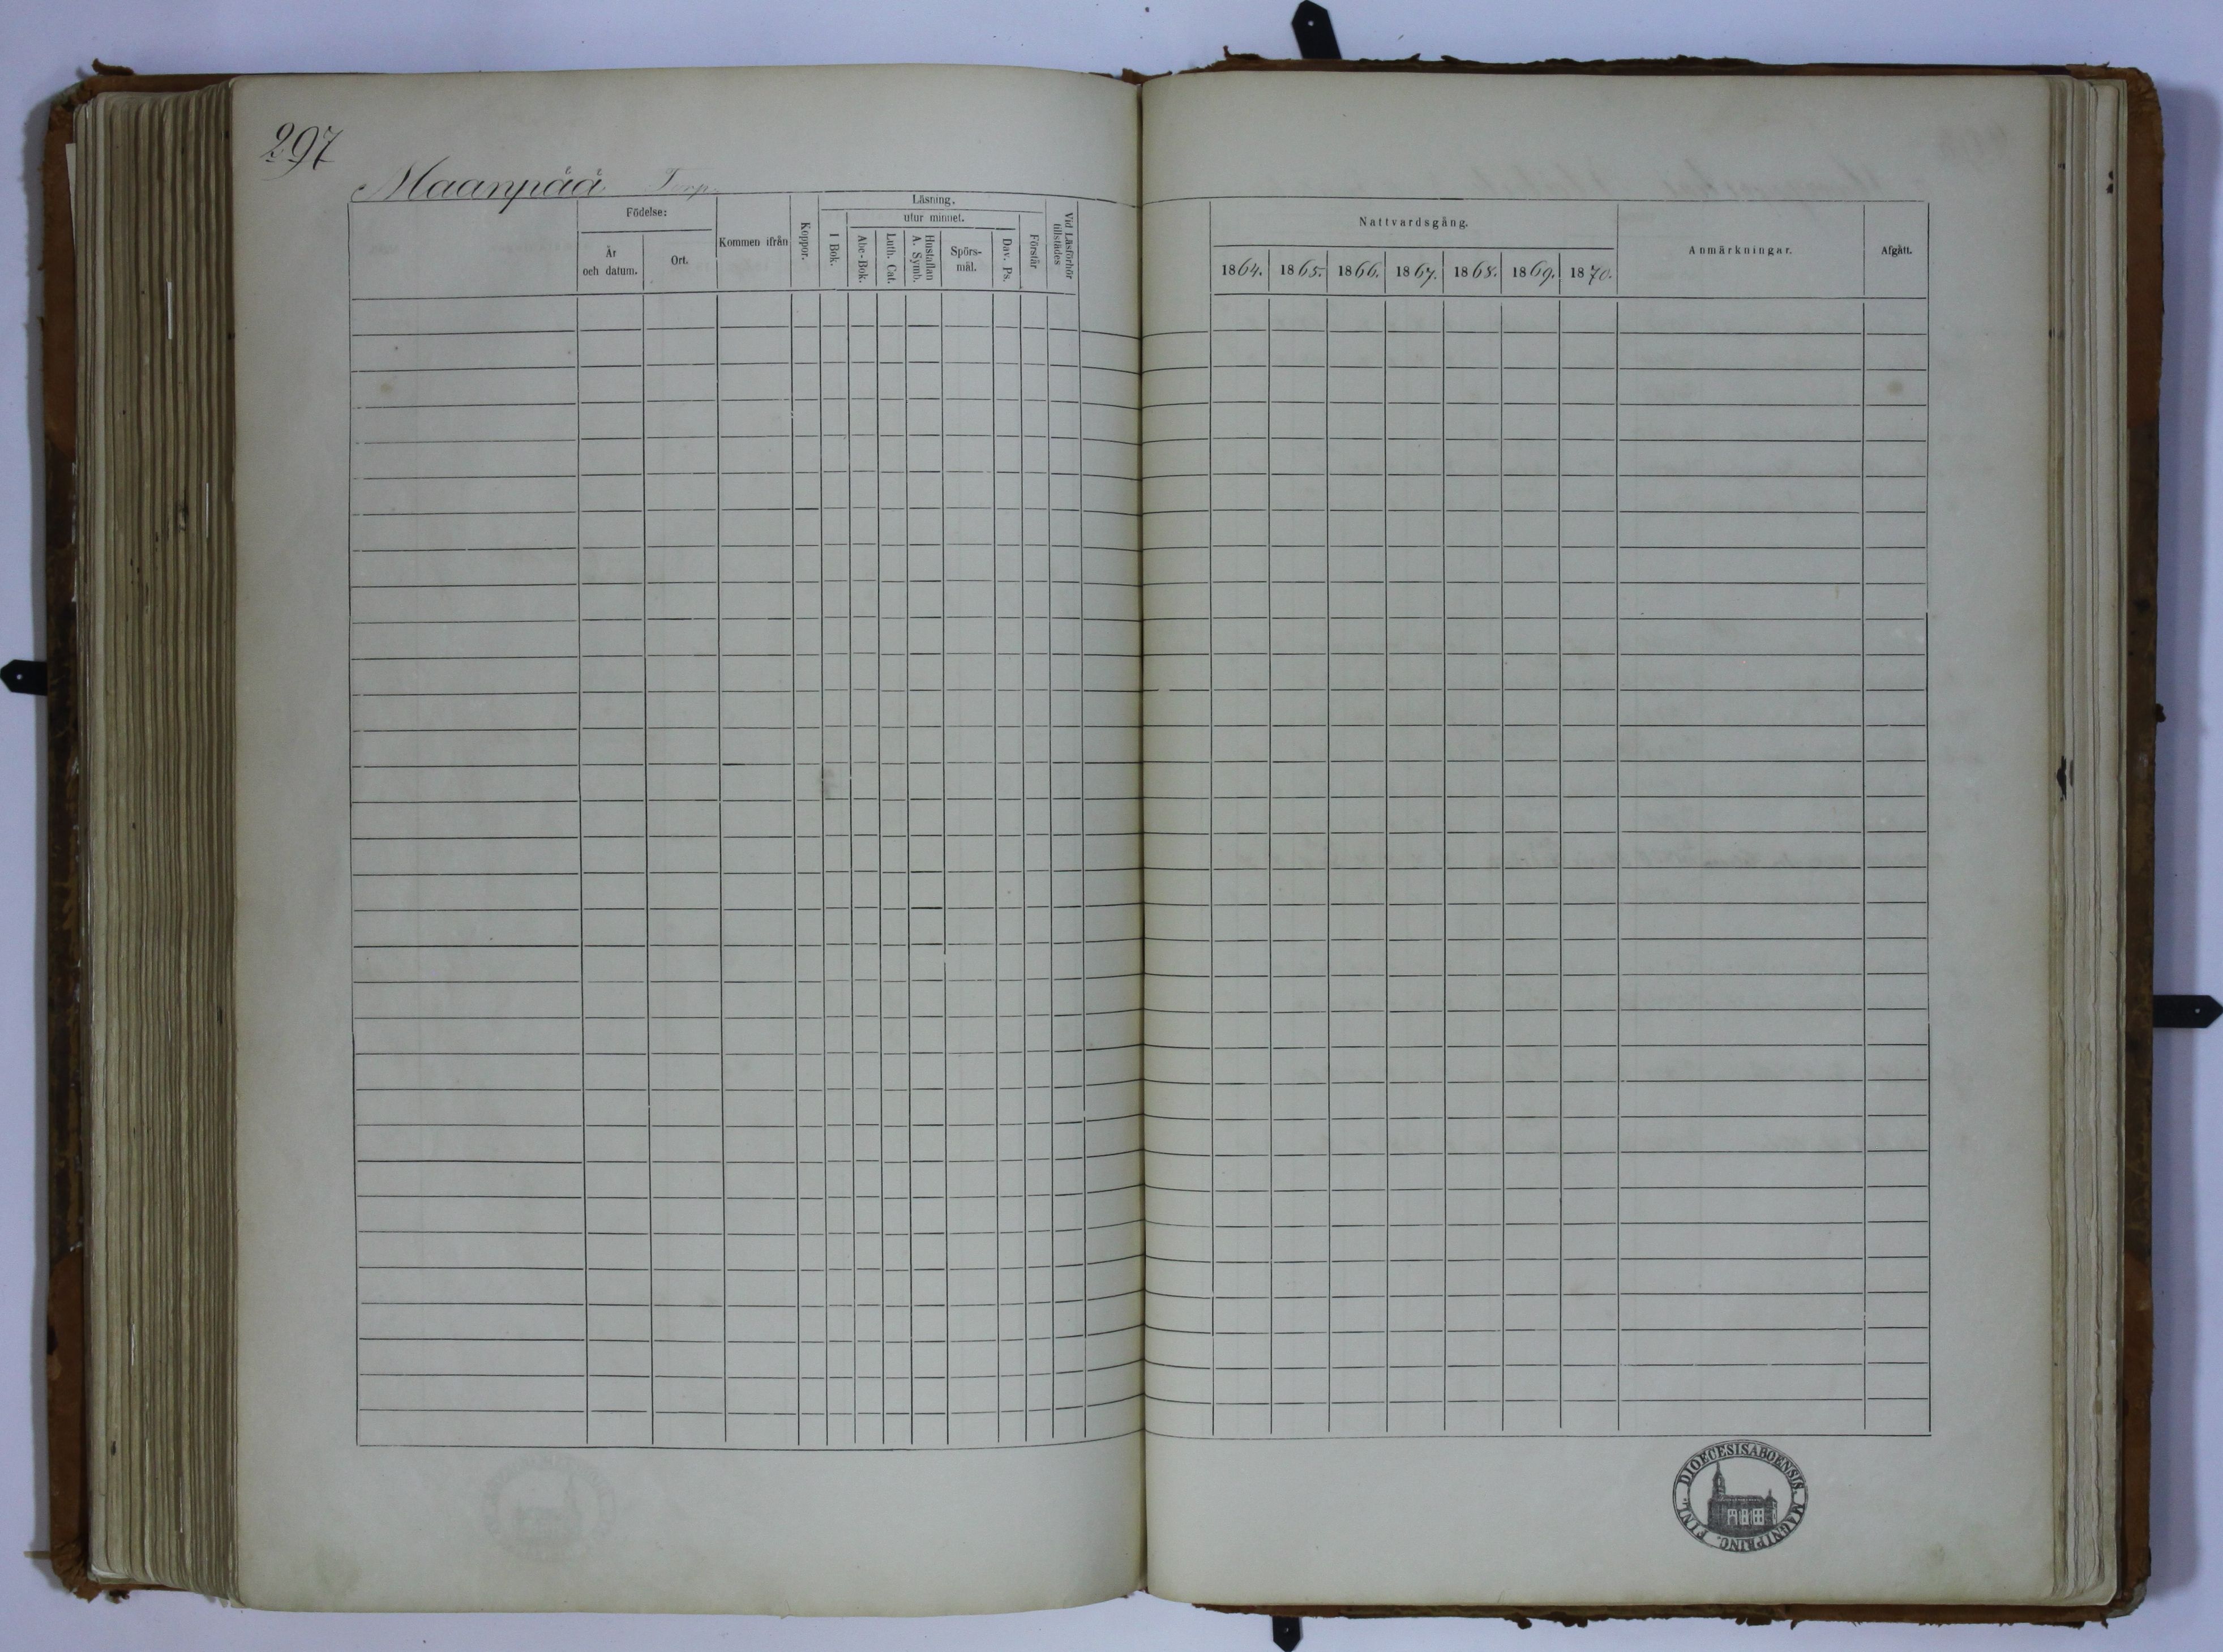 297
Maanpää Torp.
Födelse:
År och datum.
Ort.
Kommen ifrån
Koppor.
Läsning.
I Bok.
utur minnet.
Abc-Bok.
Luth. Cat.
Hustaflan A. Symb.
Spörs-mål.
Dav. Ps.
Förstår
Vid Läsförhör tillstädes
Nattvardsgång.
1864. 1865. 1866. 1867. 1868. 1869. 1870.
Anmärkningar.
Afgått.
DIOECESIS ABOENSIS. MAGNI PRINC. FINL.